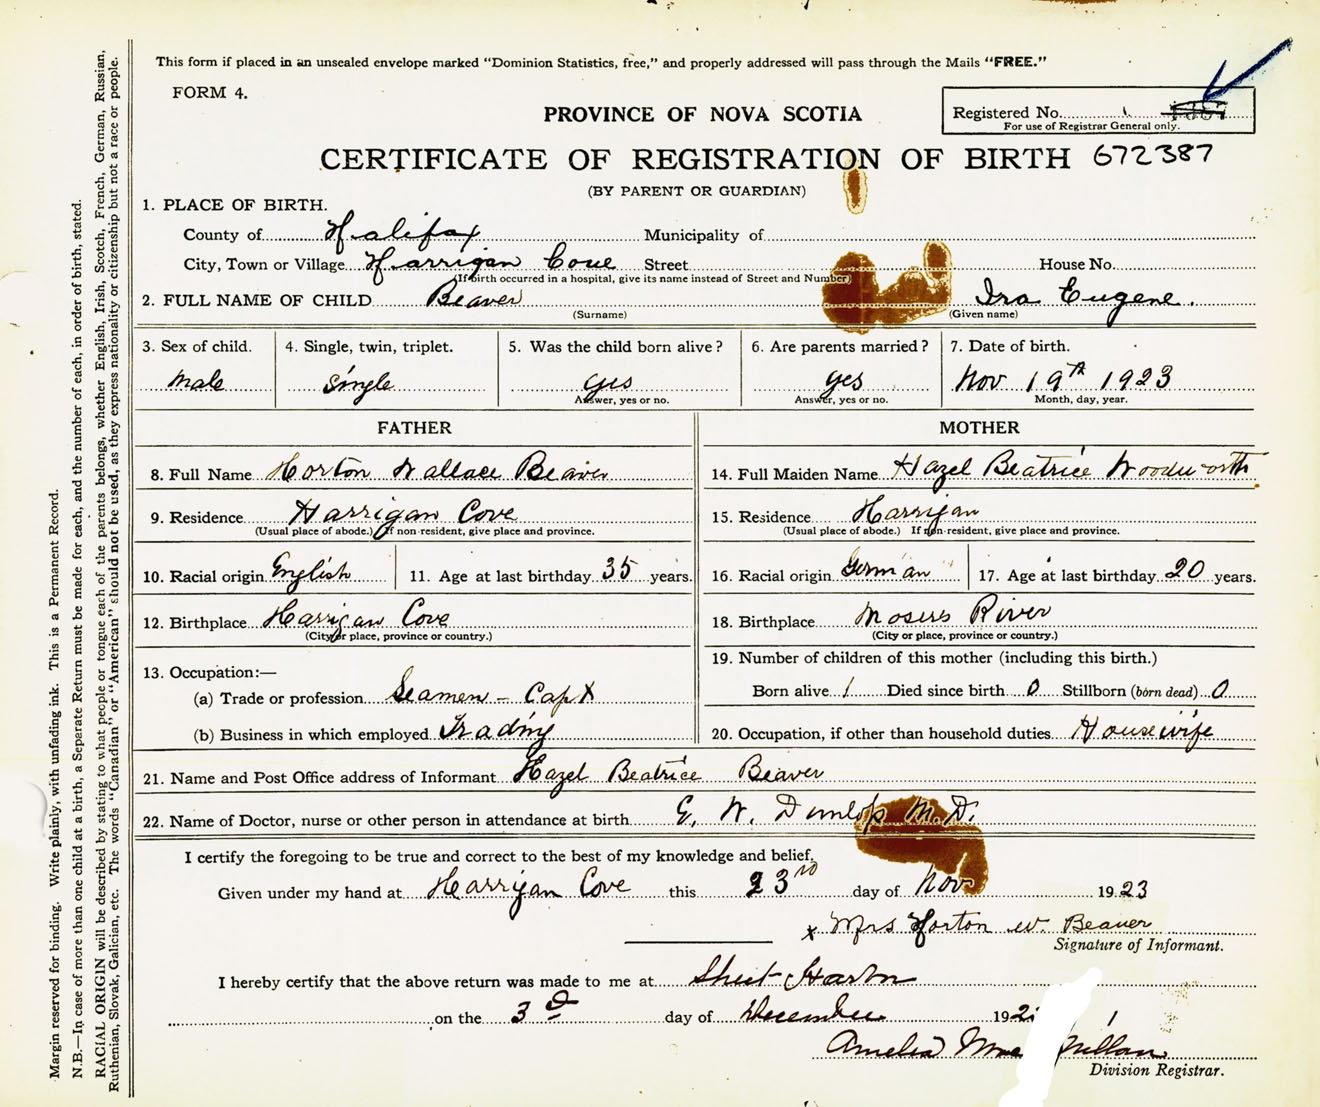 This form if placed in an unsealed envelope marked "Dominion Statistics, free," and properly addressed will pass through the Mails "FREE."
FORM 4.
PROVINCE OF NOVA SCOTIA
Registered No.
For use of Registrar General only.
CERTIFICATE OF REGISTRATION OF BIRTH 672387
(BY PARENT OR GUARDIAN)
1. PLACE OF BIRTH.
County of Halifax Municipality of
City, Town or Village Harrigan Cove Street House No.
(If birth occurred in a hospital, give its name instead of Street and Number)
2. FULL NAME OF CHILD Beaver Ira Eugene.
(Surname) (Given name)
3. Sex of child. 4. Single, twin, triplet. 5. Was the child born alive? 6. Are parents married? 7. Date of birth.
Male Single yes yes Nov 19th 1923
Answer, yes or no. Answer, yes or no. Month, day, year.
FATHER MOTHER
8. Full Name Horton Wallace Beaver 14. Full Maiden Name Hazel Beatrice Woodworth
9. Residence Harrigan Cove 15. Residence Harrigan
(Usual place of abode.) If non-resident, give place and province. (Usual place of abode.) If non-resident, give place and province.
10. Racial origin English 11. Age at last birthday 35 years. 16. Racial origin German 17. Age at last birthday 20 years.
12. Birthplace Harrigan Cove 18. Birthplace Mosers River
(City or place, province or country.) (City or place, province or country.)
13. Occupation:— 19. Number of children of this mother (including this birth.)
(a) Trade or profession Seamen - Capt Born alive 1 Died since birth 0 Stillborn (born dead) 0
(b) Business in which employed Trading 20. Occupation, if other than household duties Housewife
21. Name and Post Office address of Informant Hazel Beatrice Beaver
22. Name of Doctor, nurse or other person in attendance at birth G. W. Dunlop M.D.
I certify the foregoing to be true and correct to the best of my knowledge and belief.
Given under my hand at Harrigan Cove this 23rd day of Nov 1923
x Mrs Horton W. Beaver
Signature of Informant.
I hereby certify that the above return was made to me at Sheet Harbor
on the 3d day of December 192
Amelia Millan
Division Registrar.
Margin reserved for binding. Write plainly, with unfading ink. This is a Permanent Record.
N.B.—In case of more than one child at a birth, a Separate Return must be made for each, and the number of each, in order of birth, stated.
RACIAL ORIGIN will be described by stating to what people or tongue each of the parents belongs, whether English, Irish, Scotch, French, German, Russian,
Ruthenian, Slovak, Galician, etc. The words "Canadian" or "American" should not be used, as they express nationality or citizenship but not a race or people.